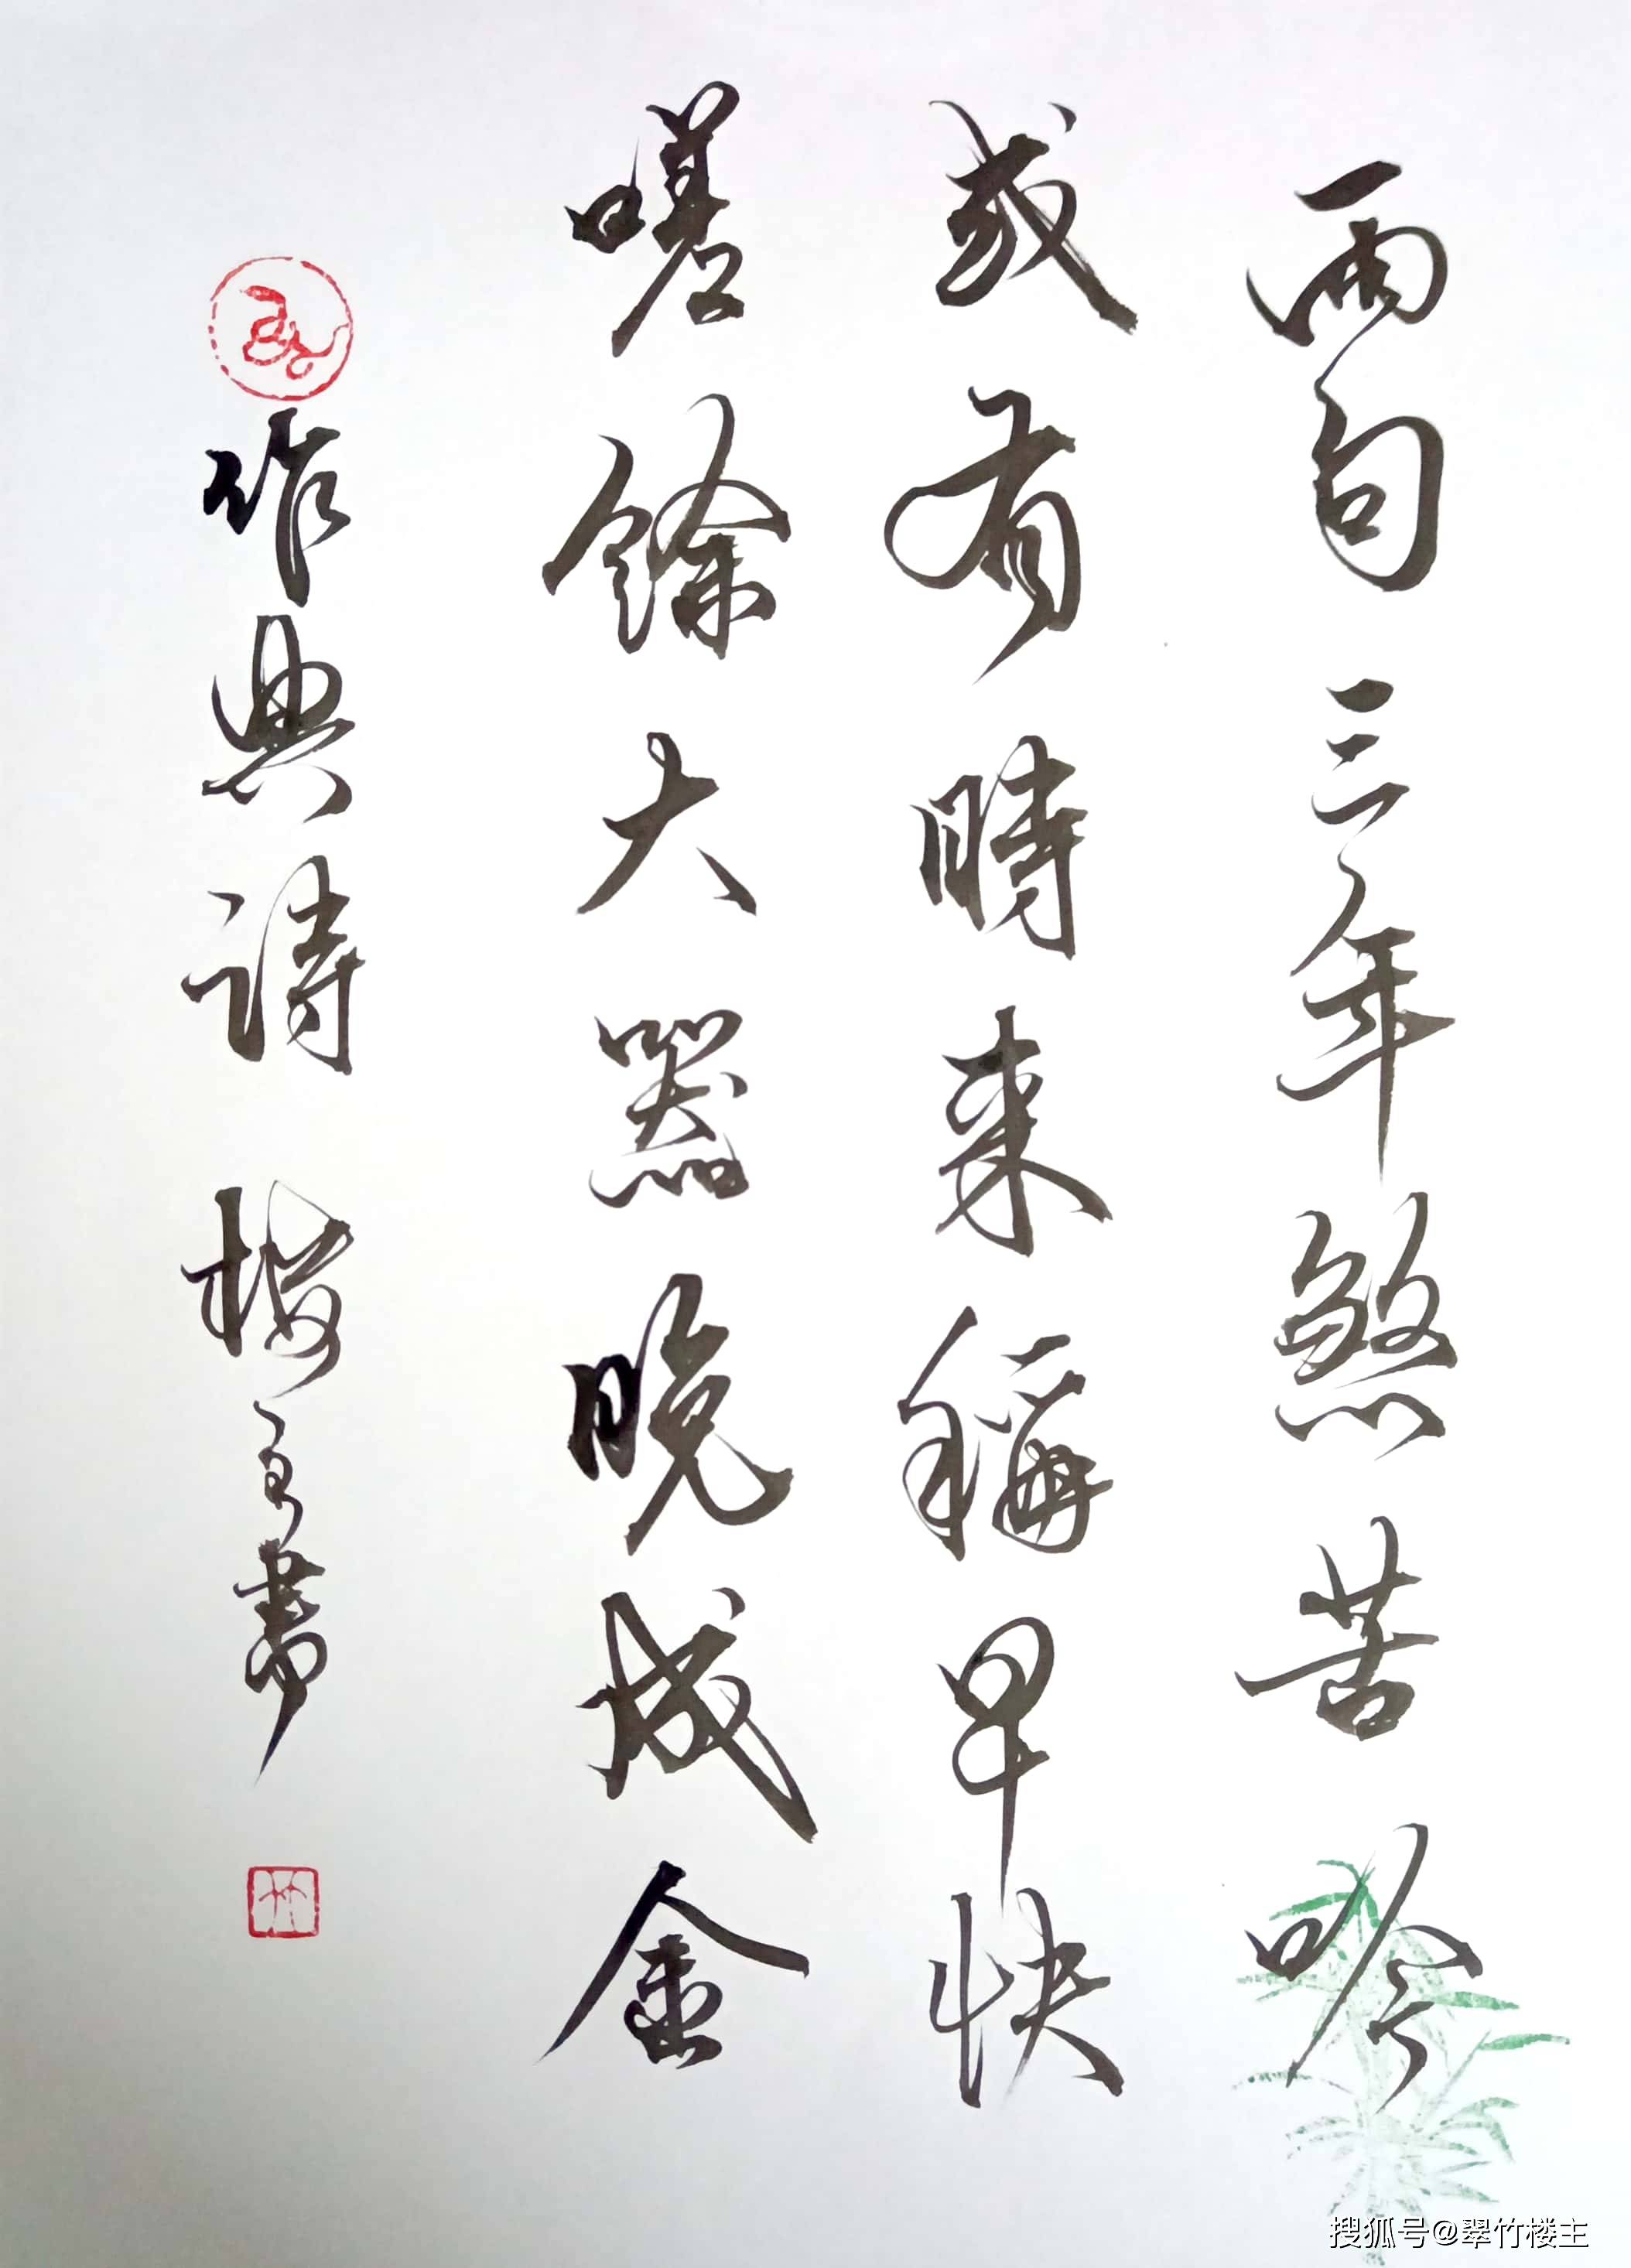 兩句三年煞苦吟
或有時来稱早快
嗟餘大器晚成金
作典詩 樓主書
竹
搜狐号@翠竹楼主